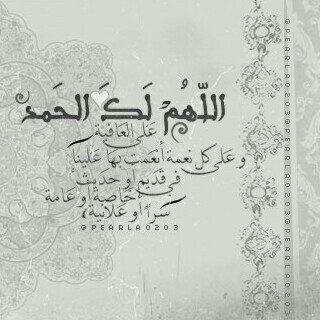 اللّهُمّ لَكَ الحَمد
عَلى العَافية
وعَلى كل نعمة أنعَمت بهَا عَلينا
في قَديم أو حَديث
أو خاصَة أو عَامة
سَراً أو عَلانية
@PEARLA0203
@PEARLA0203@PEARLA0203@PEARLA0203